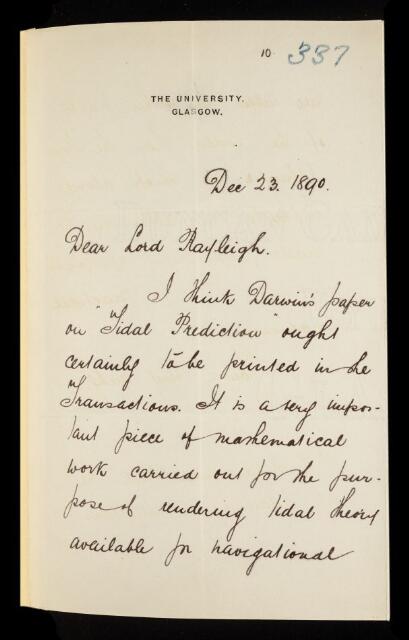 10. 337
THE UNIVERSITY,
GLASGOW.
Dec 23. 1890.
Dear Lord Rayleigh.
I think Darwin's paper
on "Tidal Prediction" ought
certainly to be printed in the
Transactions. It is a very impor-
tant piece of mathematical
work carried out for the pur-
pose of rendering tidal theory
available for navigational